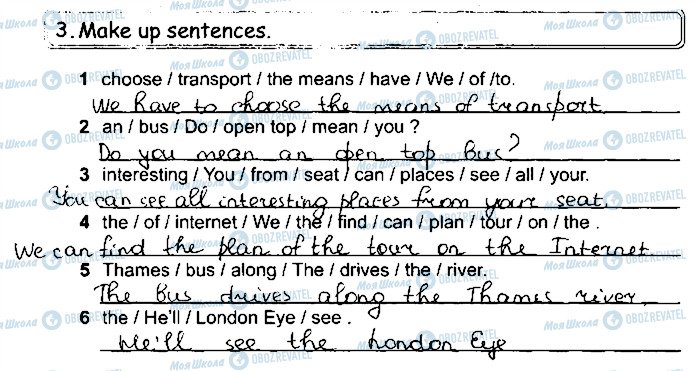 3. Make up sentences.
1 choose / transport / the means / have / We / of /to.
We have to choose the means of transport.
2 an / bus / Do / open top / mean / you ?
Do you mean an open top bus?
3 interesting / You / from / seat / can / places / see / all / your.
You can see all interesting places from your seat.
4 the / of / internet / We / the / find / can / plan / tour / on / the .
We can find the plan of the tour on the Internet.
5 Thames / bus / along / The / drives / the / river.
The bus drives along the Thames river.
6 the / He'll / London Eye / see .
He'll see the London Eye